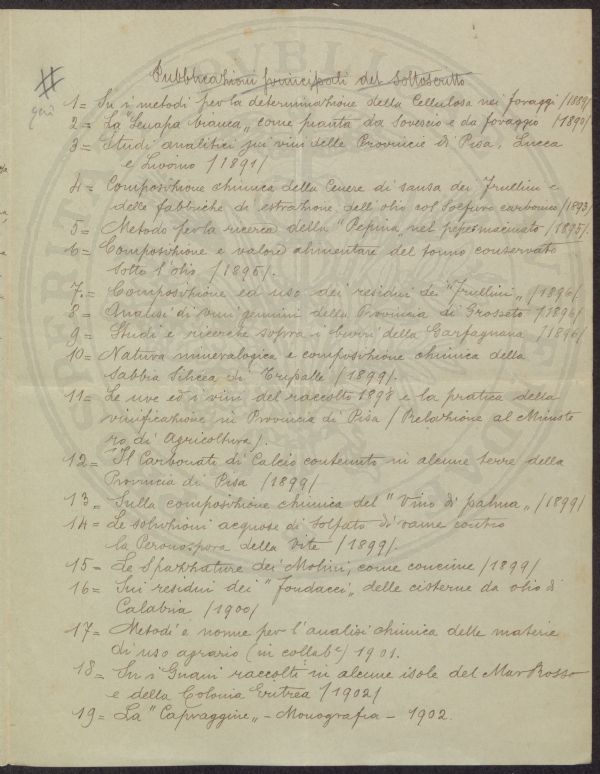 Pubblicazioni principali del sottoscritto
1= Su i metodi per la determinazione della Cellulosa nei foraggi /1889/
2= La "Senapa bianca„ come pianta da Sovescio e da foraggio /1890/
3= Studi analitici sui vini delle Provincie di Pisa, Lucca
e Livorno /1891/
4= Composizione chimica della Cenere di sansa dei Frullini e
delle fabbriche di estrazione dell'olio col Solfuro carbonico /1893/
5= Metodo per la ricerca della "Pepina„ nel pepe macinato /1895/
6= Composizione e valore alimentare del tonno conservato
sotto l'olio /1895/.
7.= Composizione ed uso dei residui dei "frullini„ /1896/
8= Analisi di vini genuini della Provincia di Grosseto /1896/
9= Studi e ricerche sopra i burri della Garfagnana /1896/
10= Natura mineralogica e composizione chimica della
Sabbia Silicea di Tripalle /1899/.
11= Le uve ed i vini del raccolto 1898 e la pratica della
vinificazione in Provincia di Pisa /Relazione al Ministe
ro di Agricoltura/.
12= Il Carbonato di Calcio contenuto in alcune terre della
Provincia di Pisa /1899/
13= Sulla composizione chimica del "Vino di palma„ /1899/
14= Le soluzioni acquose di Solfato di rame contro
la Peronospora della Vite /1899/.
15= Le Spazzature dei Molini, come concime /1899/
16= Sui residui dei "fondacci„ delle cisterne da olio di
Calabria /1900/
17= Metodi e norme per l'analisi chimica delle materie
di uso agrario (in collab.e) 1901.
18= Su i Guani raccolti in alcune isole del Mar Rosso
e della Colonia Eritrea /1902/
19= La "Capraggine„ - Monografia - 1902.